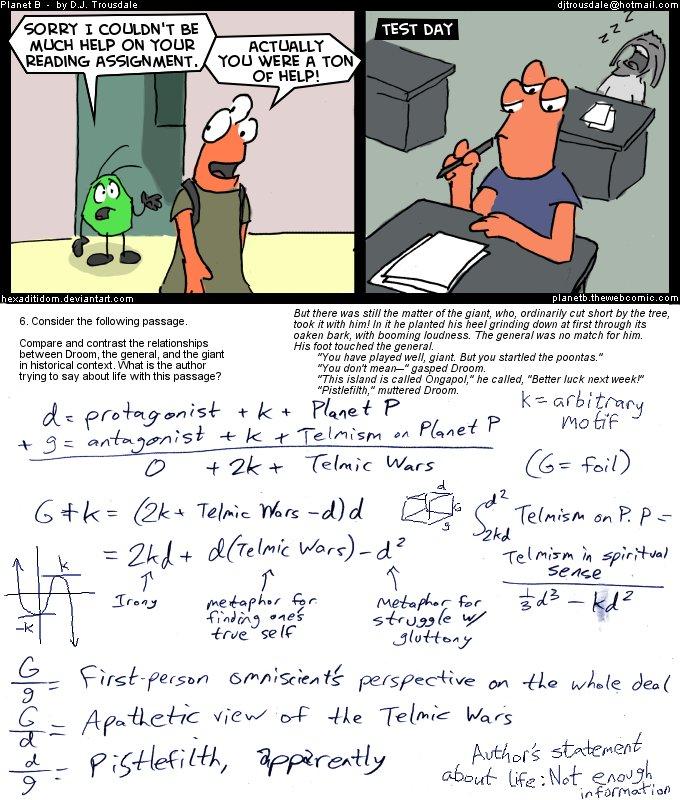 Planet B - by D.J. Trousdale
djtrousdale@hotmail.com
SORRY I COULDN'T BE
MUCH HELP ON YOUR
READING ASSIGNMENT.
ACTUALLY
YOU WERE A TON
OF HELP!
TEST DAY
z z z
hexaditidom.deviantart.com
planetb.thewebcomic.com
6. Consider the following passage.
Compare and contrast the relationships
between Droom, the general, and the giant
in historical context. What is the author
trying to say about life with this passage?
But there was still the matter of the giant, who, ordinarily cut short by the tree,
took it with him! In it he planted his heel grinding down at first through its
oaken bark, with booming loudness. The general was no match for him.
His foot touched the general.
"You have played well, giant. But you startled the poontas."
"You don't mean—" gasped Droom.
"This island is called Ongapol," he called, "Better luck next week!"
"Pistlefilth," muttered Droom.
d = protagonist + k + Planet P
+ g = antagonist + k + Telmism on Planet P
0 + 2k + Telmic Wars
k = arbitrary
motif
(G = foil)
G ≠ k = (2k + Telmic Wars - d)d
d
G
g
∫ d² 2kd Telmism on P. P =
Telmism in spiritual
sense
⅓d³ - kd²
= 2kd + d(Telmic Wars) - d²
k
-k
Irony
metaphor for
finding one's
true self
Metaphor for
struggle w/
gluttony
G/g = First-person omniscient's perspective on the whole deal
G/d = Apathetic view of the Telmic Wars
d/g = Pistlefilth, apparently
Author's statement
about life: Not enough
information